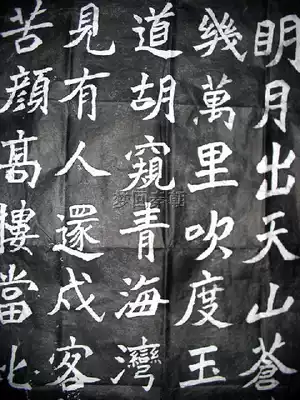 明月出天山蒼
幾萬里吹度玉
道胡窺青海灣
見有人還戍客
苦顏髙樓當此